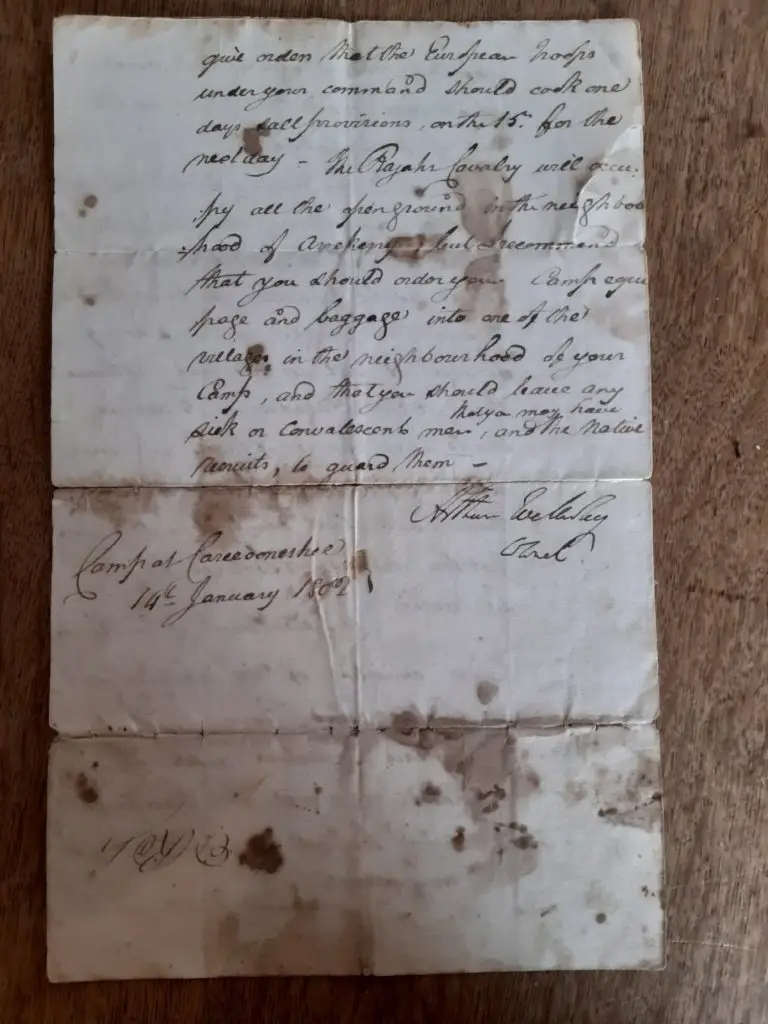 give orders that the European troops
under your command should cook one
days salt provisions, on the 15th. for the
next day - The Rajahs Cavalry will occu:
:py all the open ground in the neighbou
:hood of Arekery; but I recommend
that you should order your Camp equi
page and baggage into one of the
villages in the neighbourhood of your
Camp, and that you should leave any
that you may have
sick or convalescent men, and the Native
recruits, to guard them -
Arthur Wellesley
Colonel.
Camp at
14th January 1802